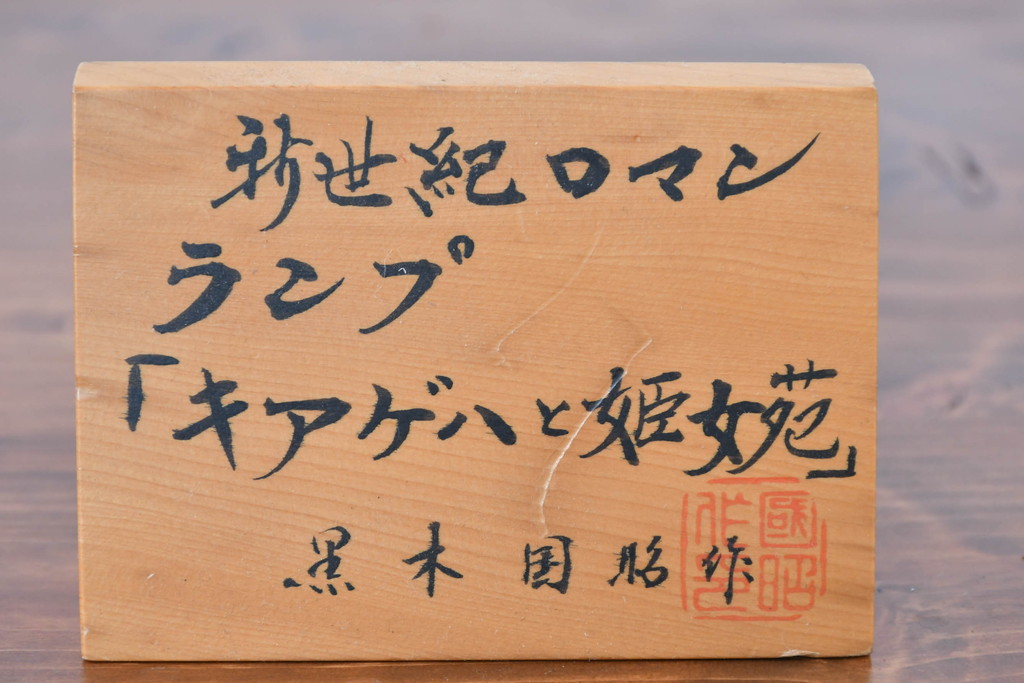 新世紀ロマン
ランプ
「キアゲハと姫女苑」
黒木国昭作
國昭